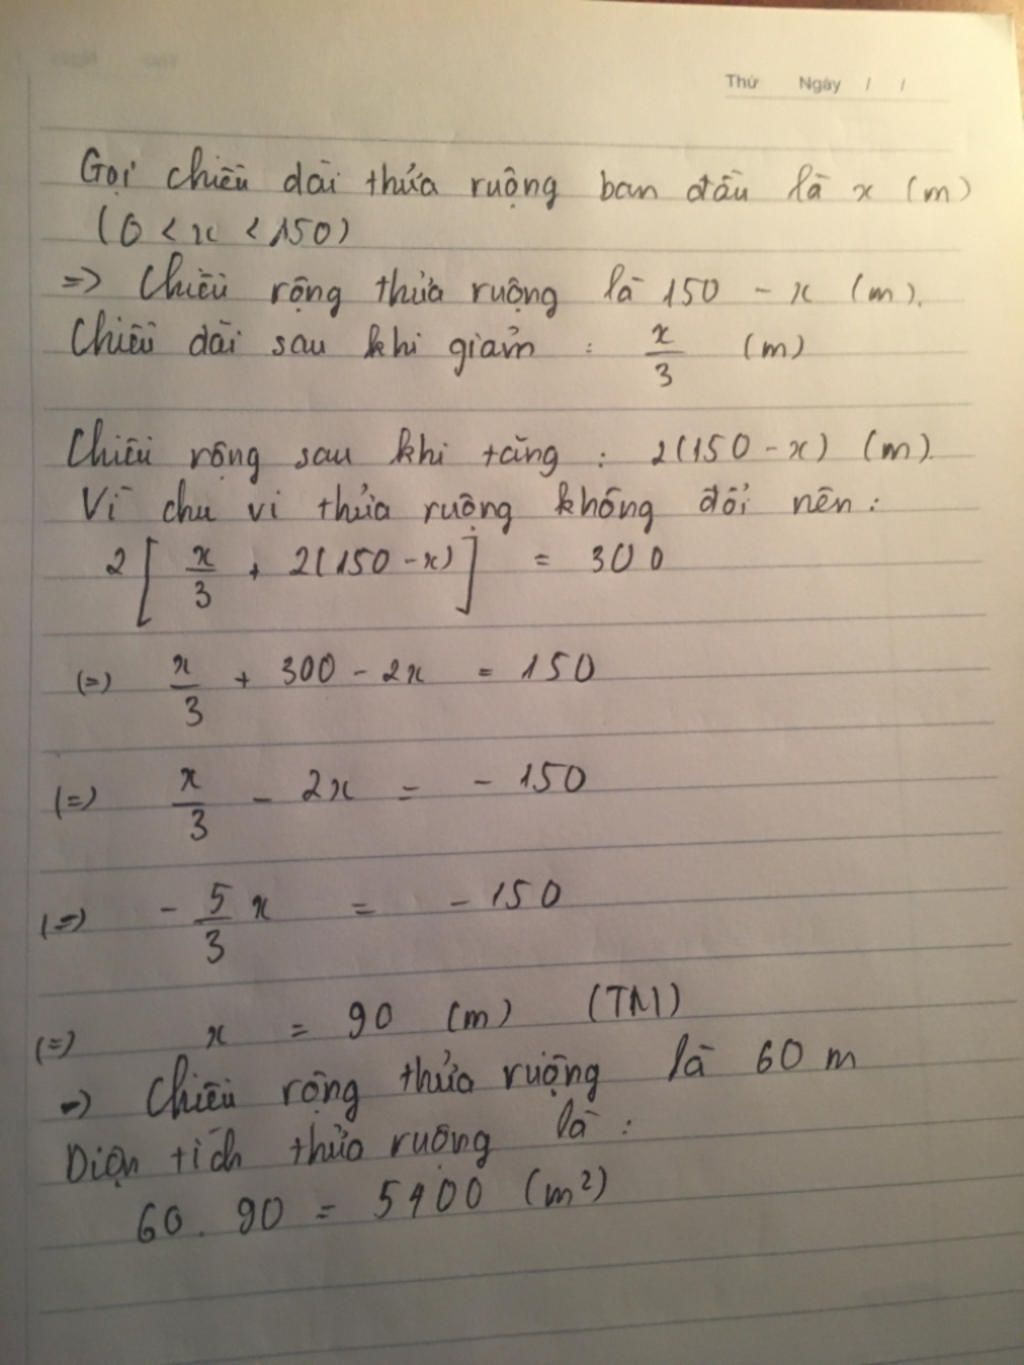 Thứ Ngày / /
Gọi chiều dài thửa ruộng ban đầu là x (m)
(0 < x < 150)
=> Chiều rộng thửa ruộng là 150 - x (m).
Chiều dài sau khi giảm : x/3 (m)
Chiều rộng sau khi tăng : 2(150 - x) (m).
Vì chu vi thửa ruộng không đổi nên :
2[x/3 + 2(150 - x)] = 300
(=) x/3 + 300 - 2x = 150
(=) x/3 - 2x = - 150
(=) - 5/3 x = - 150
(=) x = 90 (m) (TM)
-> Chiều rộng thửa ruộng là 60 m
Diện tích thửa ruộng là :
60 . 90 = 5400 (m²)